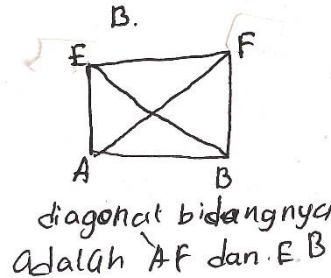 B.
E F
A B
diagonal bidangnya
adalah AF dan EB